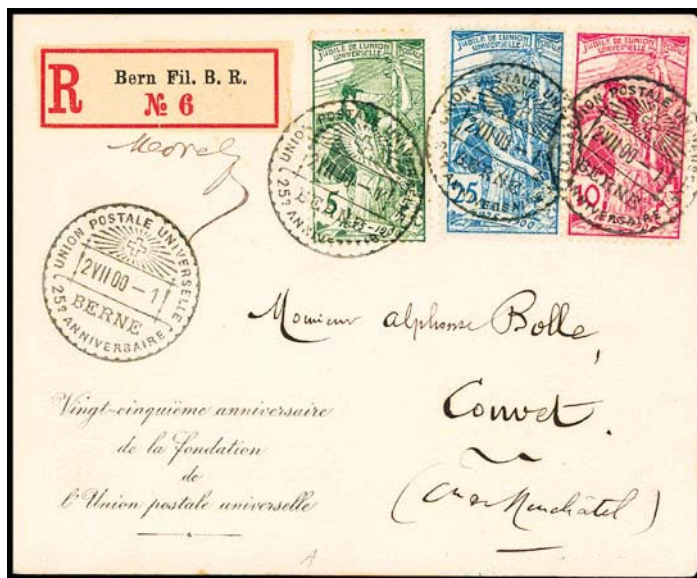 R
Bern Fil. B. R.
№ 6
JUBILÉ DE L'UNION POSTALE UNIVERSELLE
5
JUBILÉ DE L'UNION POSTALE UNIVERSELLE
25
JUBILÉ DE L'UNION POSTALE UNIVERSELLE
10
UNION POSTALE UNIVERSELLE
2 VII 00 - 1
BERNE
25e ANNIVERSAIRE
Monsieur Alphonse Bolle,
Couvet.
Neuchâtel)
Vingt-cinquième anniversaire
de la fondation
de
l'Union postale universelle